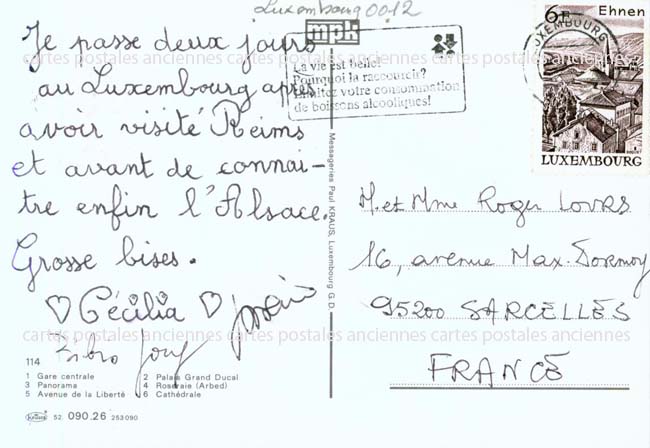 Luxembourg 0012
mpk
La vie est belle!
Pourquoi la raccourcir?
Limitez votre consommation
de boissons alcooliques!
LUXEMBOURG
6F Ehnen
LUXEMBOURG
Je passe deux jours
au Luxembourg après
avoir visité Reims
et avant de connai-
tre enfin l'Alsace.
Grosse bises.
♡ Cécilia ♡
114
1 Gare centrale 2 Palais Grand Ducal
3 Panorama 4 Roseraie (Arbed)
5 Avenue de la Liberté 6 Cathédrale
Kraus 52. 090.26 253090
Messageries Paul KRAUS, Luxembourg G.D.
M. et Mme Roger
16, avenue Max-Dormoy
95200 SARCELLES
FRANCE
cartes postales anciennes cartes postales anciennes cartes postales anciennes
cartes postales anciennes cartes postales anciennes cartes postales anciennes